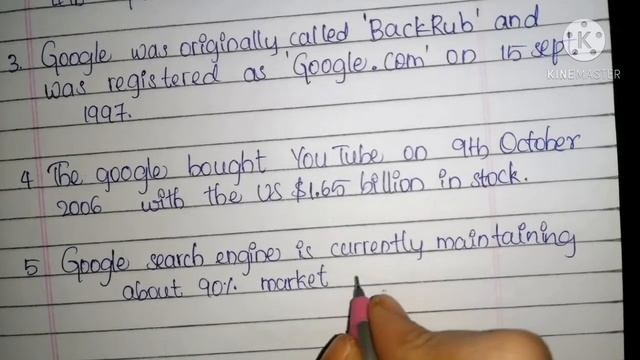 3. Google was originally called 'BackRub' and
was registered as 'Google.com' on 15 sept
1997.
4 The google bought YouTube on 9th October
2006 with the US $1.65 billion in stock.
5 Google search engine is currently maintaining
about 90% market
KINEMASTER